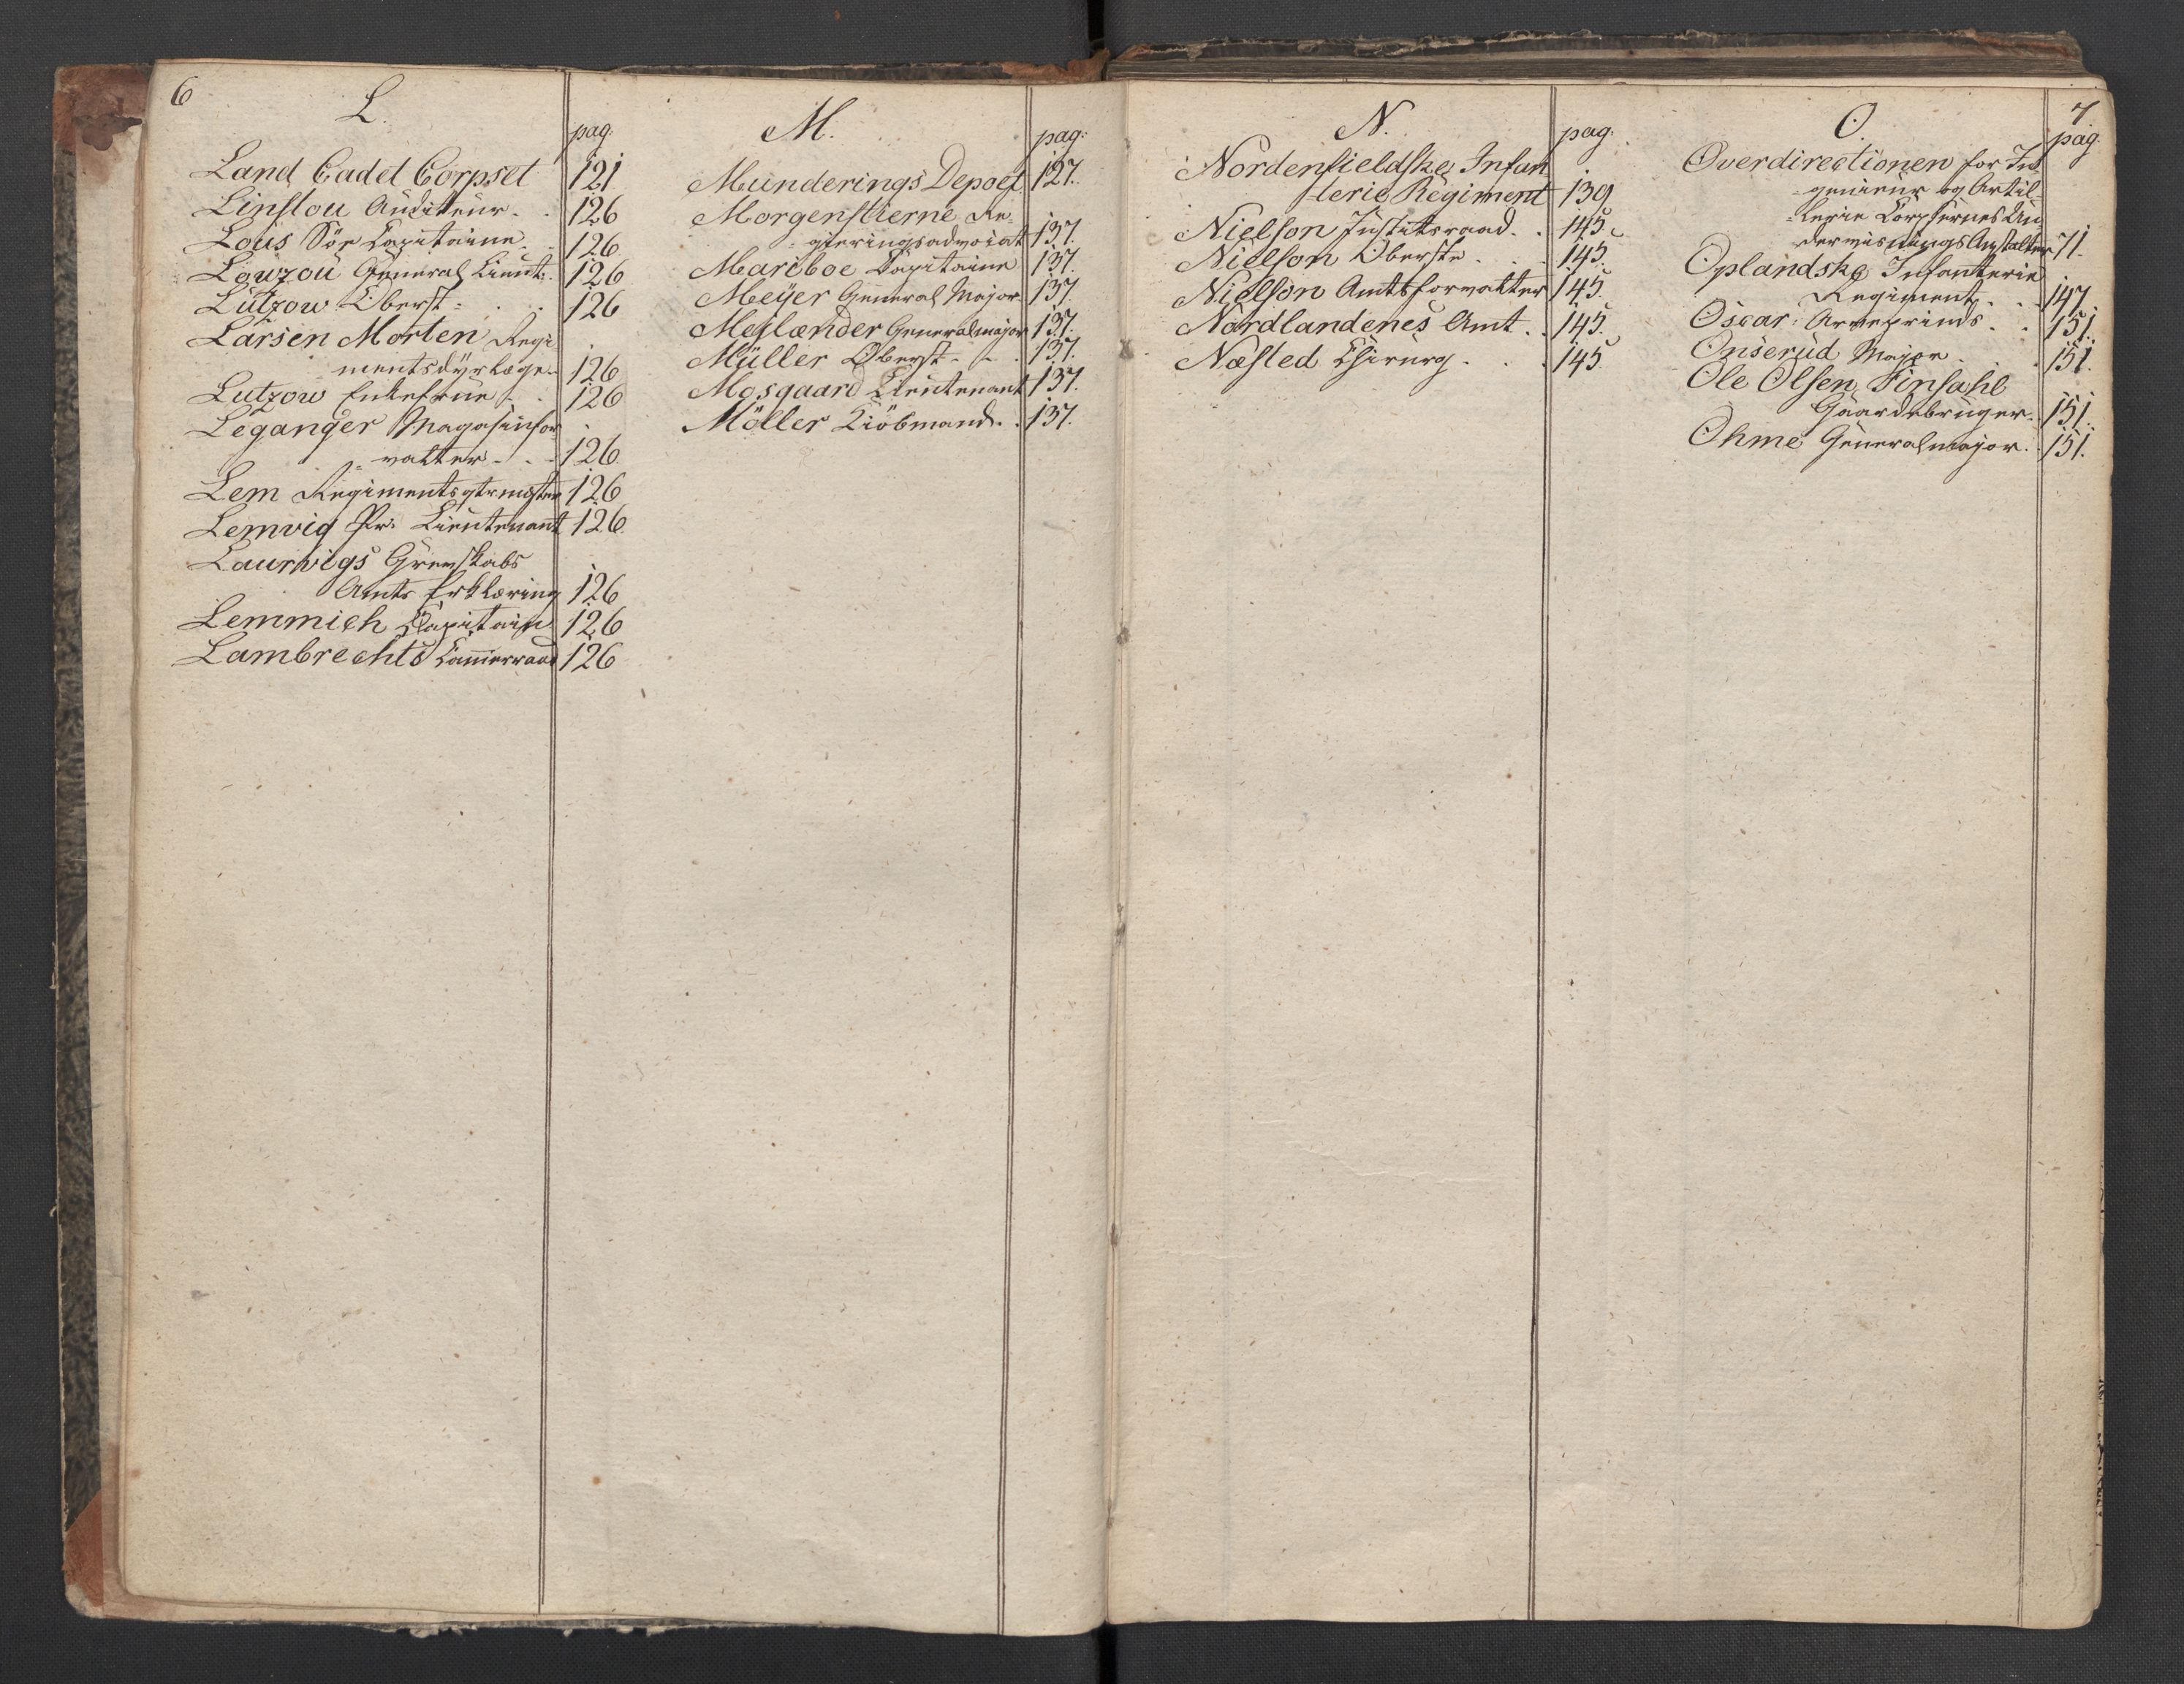 6
L.
pag:
Land Cadet Corpset 121
Linstou Auditeur. . 126
Lous Söe Capitaine. . 126
Lowzou General Lieut: 126
Lützow Oberst . . 126
Larsen Morten Regi
mentsdÿrlæge. 126
Lutzow Enkefrue . . 126
Leganger Magasinfor
valter. . . 126.
Lem Regimentsqtrmester 126
Lemvig Pr: Lieutenant 126.
Laurvigs Grevskabs
Amts Erklæring 126
Lemmich Capitain 126
Lambrechts Cammerraad 126
M.
pag:
Munderings Depoet 127.
Morgenstierne Re
gieringsadvocat 137.
Mariboe Capitaine 137.
Meÿer General Major 137.
Meilænder Generalmajor 137.
Müller Oberst . . . 137.
Mosgaard Lieutenant 137.
Möller Kiöbmand. . 137.
N.
pag:
Nordenfieldske Infan
terie Regiment 139
Nielson Justitsraad. . 145.
Nielson Oberste . . . 145.
Nielson Amtsforvalter 145.
Nordlandenes Amt . . 145.
Næsted Chirurg . . . 145
7
O.
pag
Overdirectionen for In
genieur og Artil
lerie Corpsernes Un
dervisnings Anstalter 71.
Oplandske Infanterie
Regiment . . . 147.
Oscar: Arveprinds . . 151.
Onserud Major . . 151.
Ole Olsen Finsahl
Gaardebruger. 151.
Ohme Generalmajor. 151.